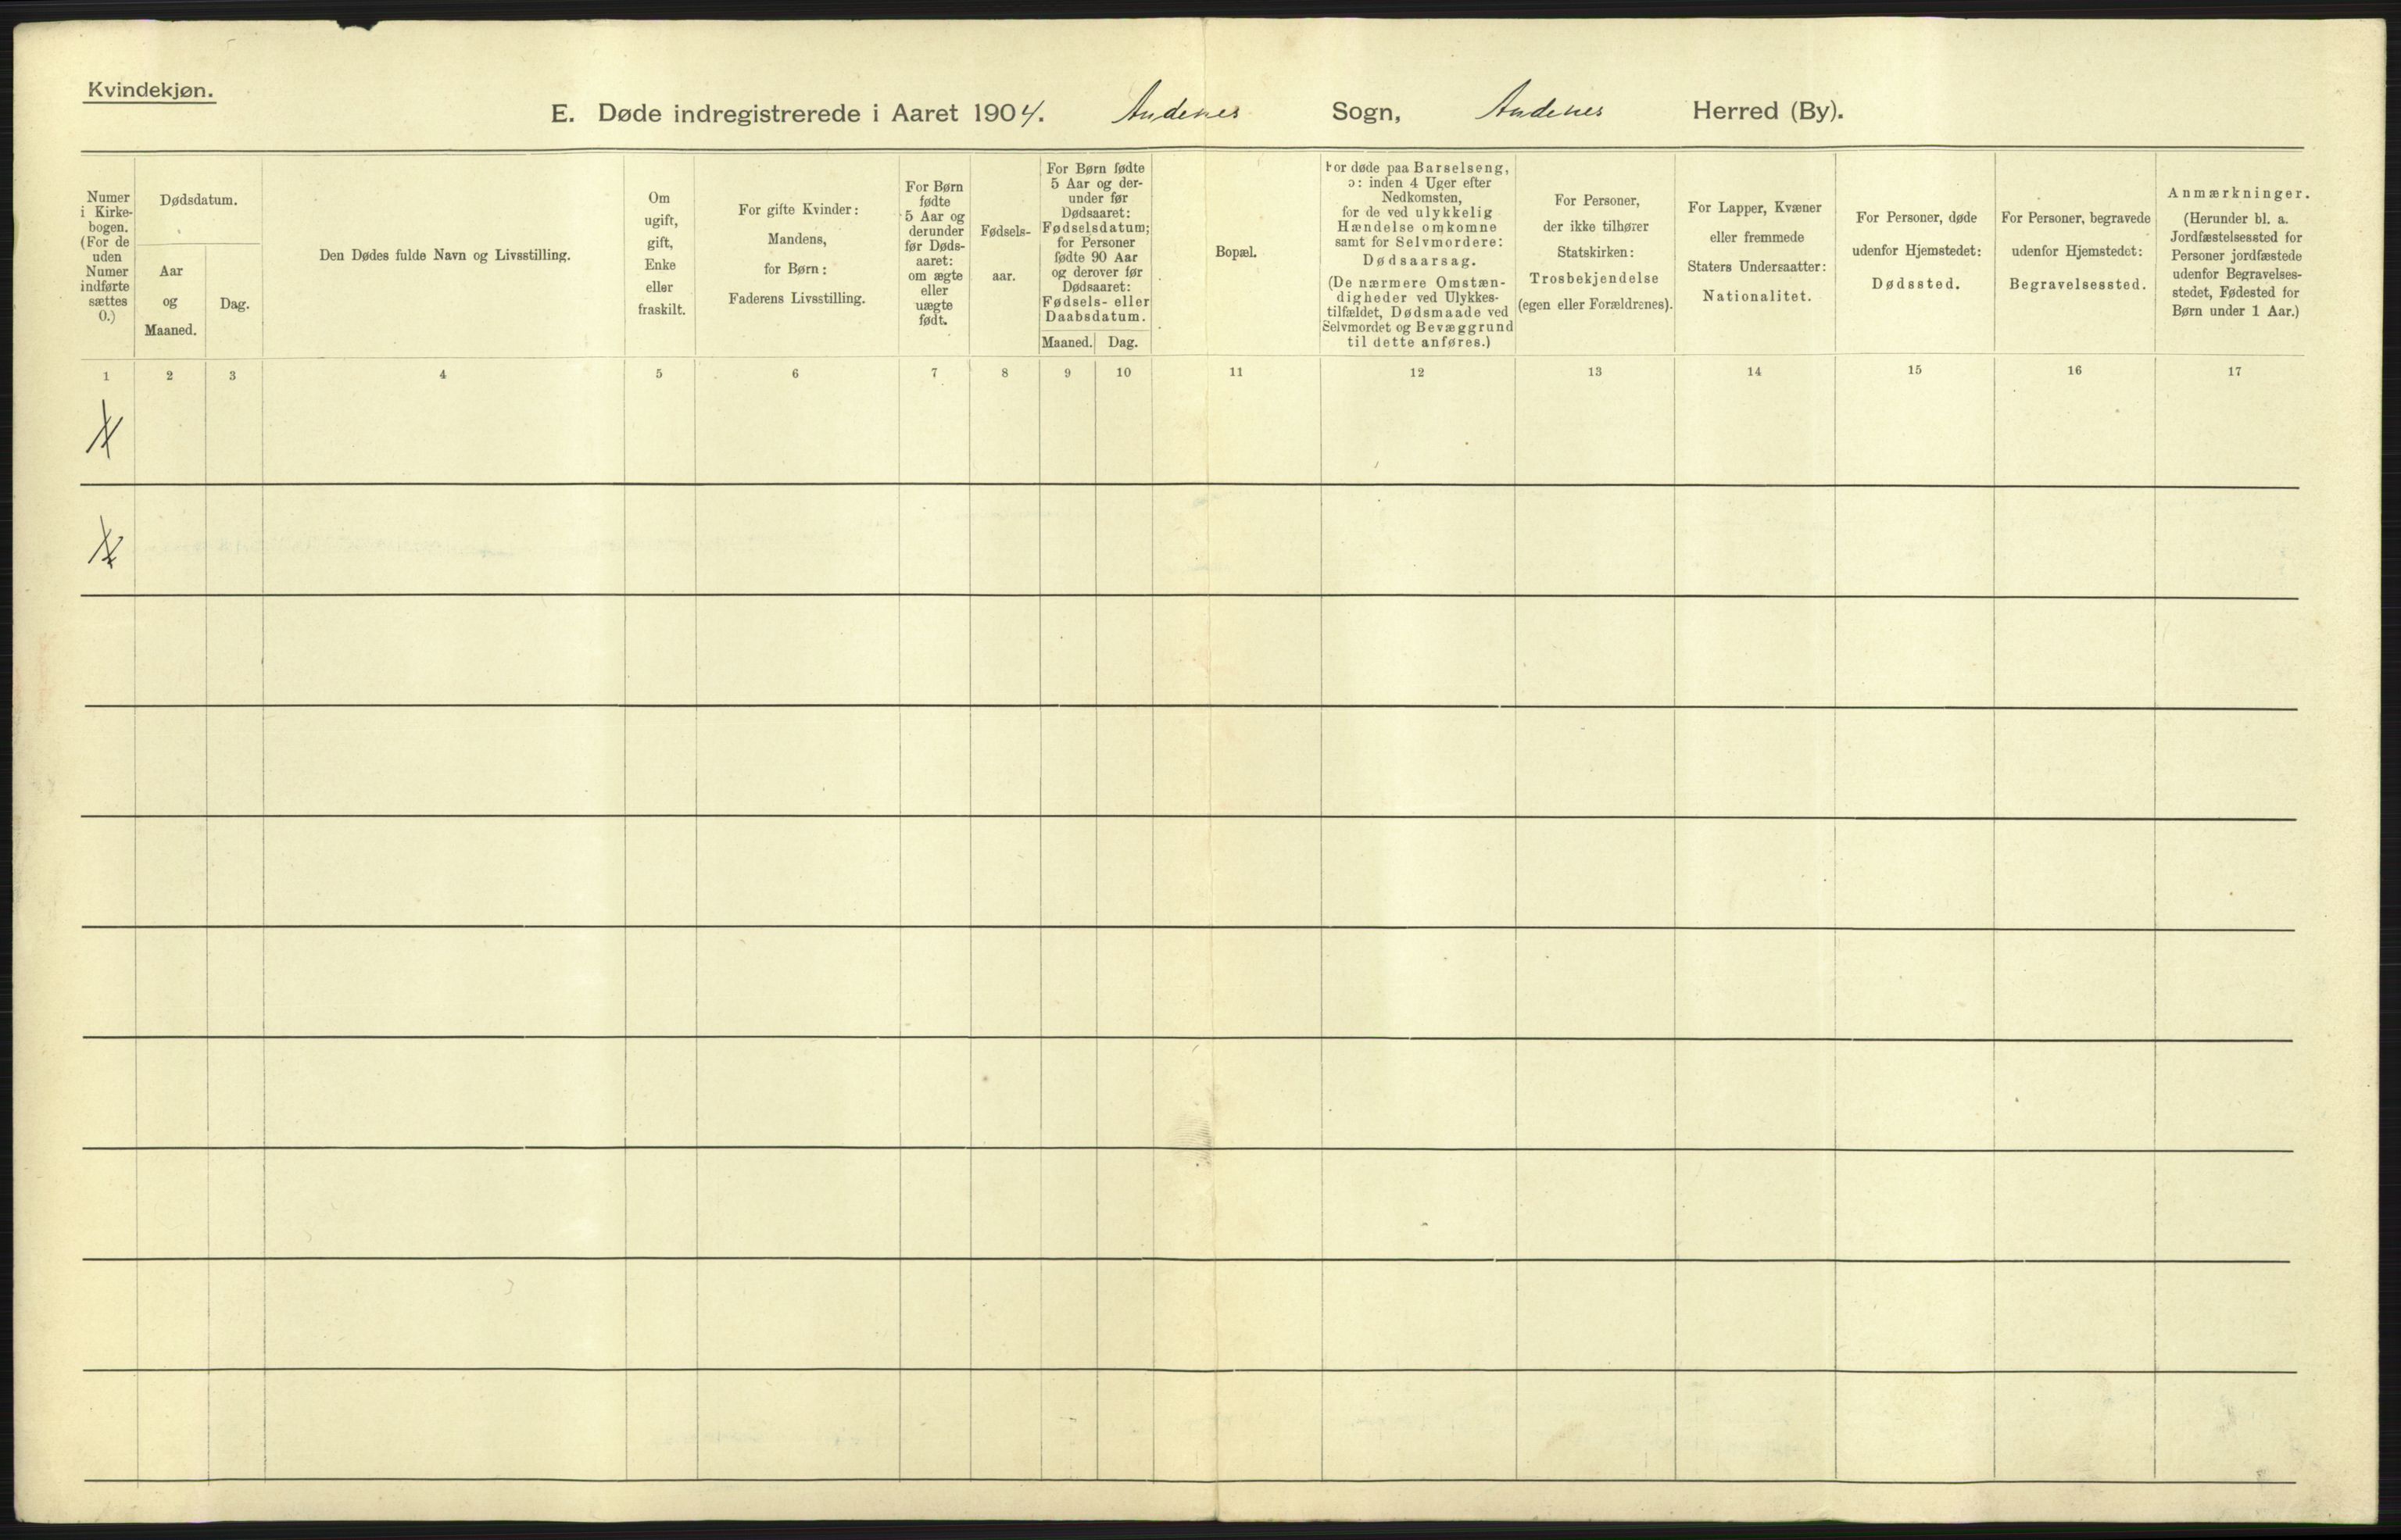 Kvindekjøn.
E. Døde indregistrerede i Aaret 1904. Andenes Sogn, Andenes Herred (By).
Numer
i Kirke-
bogen.
(For de
uden
Numer
indførte
sættes
0.)
Dødsdatum.
Aar
og
Maaned.
Dag.
Den Dødes fulde Navn og Livsstilling.
Om
ugift,
gift,
Enke
eller
fraskilt.
For gifte Kvinder:
Mandens,
for Børn:
Faderens Livsstilling.
For Børn
fødte
5 Aar og
derunder
før Døds-
aaret:
om ægte
eller
uægte
født.
Fødsels-
aar.
For Børn fødte
5 Aar og der-
under før
Dødsaaret:
Fødselsdatum;
for Personer
fødte 90 Aar
og derover før
Dødsaaret:
Fødsels- eller
Daabsdatum.
Maaned.
Dag.
Bopæl.
For døde paa Barselseng,
ɔ: inden 4 Uger efter
Nedkomsten,
for de ved ulykkelig
Hændelse omkomne
samt for Selvmordere:
Dødsaarsag.
(De nærmere Omstæn-
digheder ved Ulykkes-
tilfældet, Dødsmaade ved
Selvmordet og Bevæggrund
til dette anføres.)
For Personer,
der ikke tilhører
Statskirken:
Trosbekjendelse
(egen eller Forældrenes).
For Lapper, Kvæner
eller fremmede
Staters Undersaatter:
Nationalitet.
For Personer, døde
udenfor Hjemstedet:
Dødssted.
For Personer, begravede
udenfor Hjemstedet:
Begravelsessted.
Anmærkninger.
(Herunder bl. a.
Jordfæstelsessted for
Personer jordfæstede
udenfor Begravelses-
stedet, Fødested for
Børn under 1 Aar.)
1 2 3 4 5 6 7 8 9 10 11 12 13 14 15 16 17